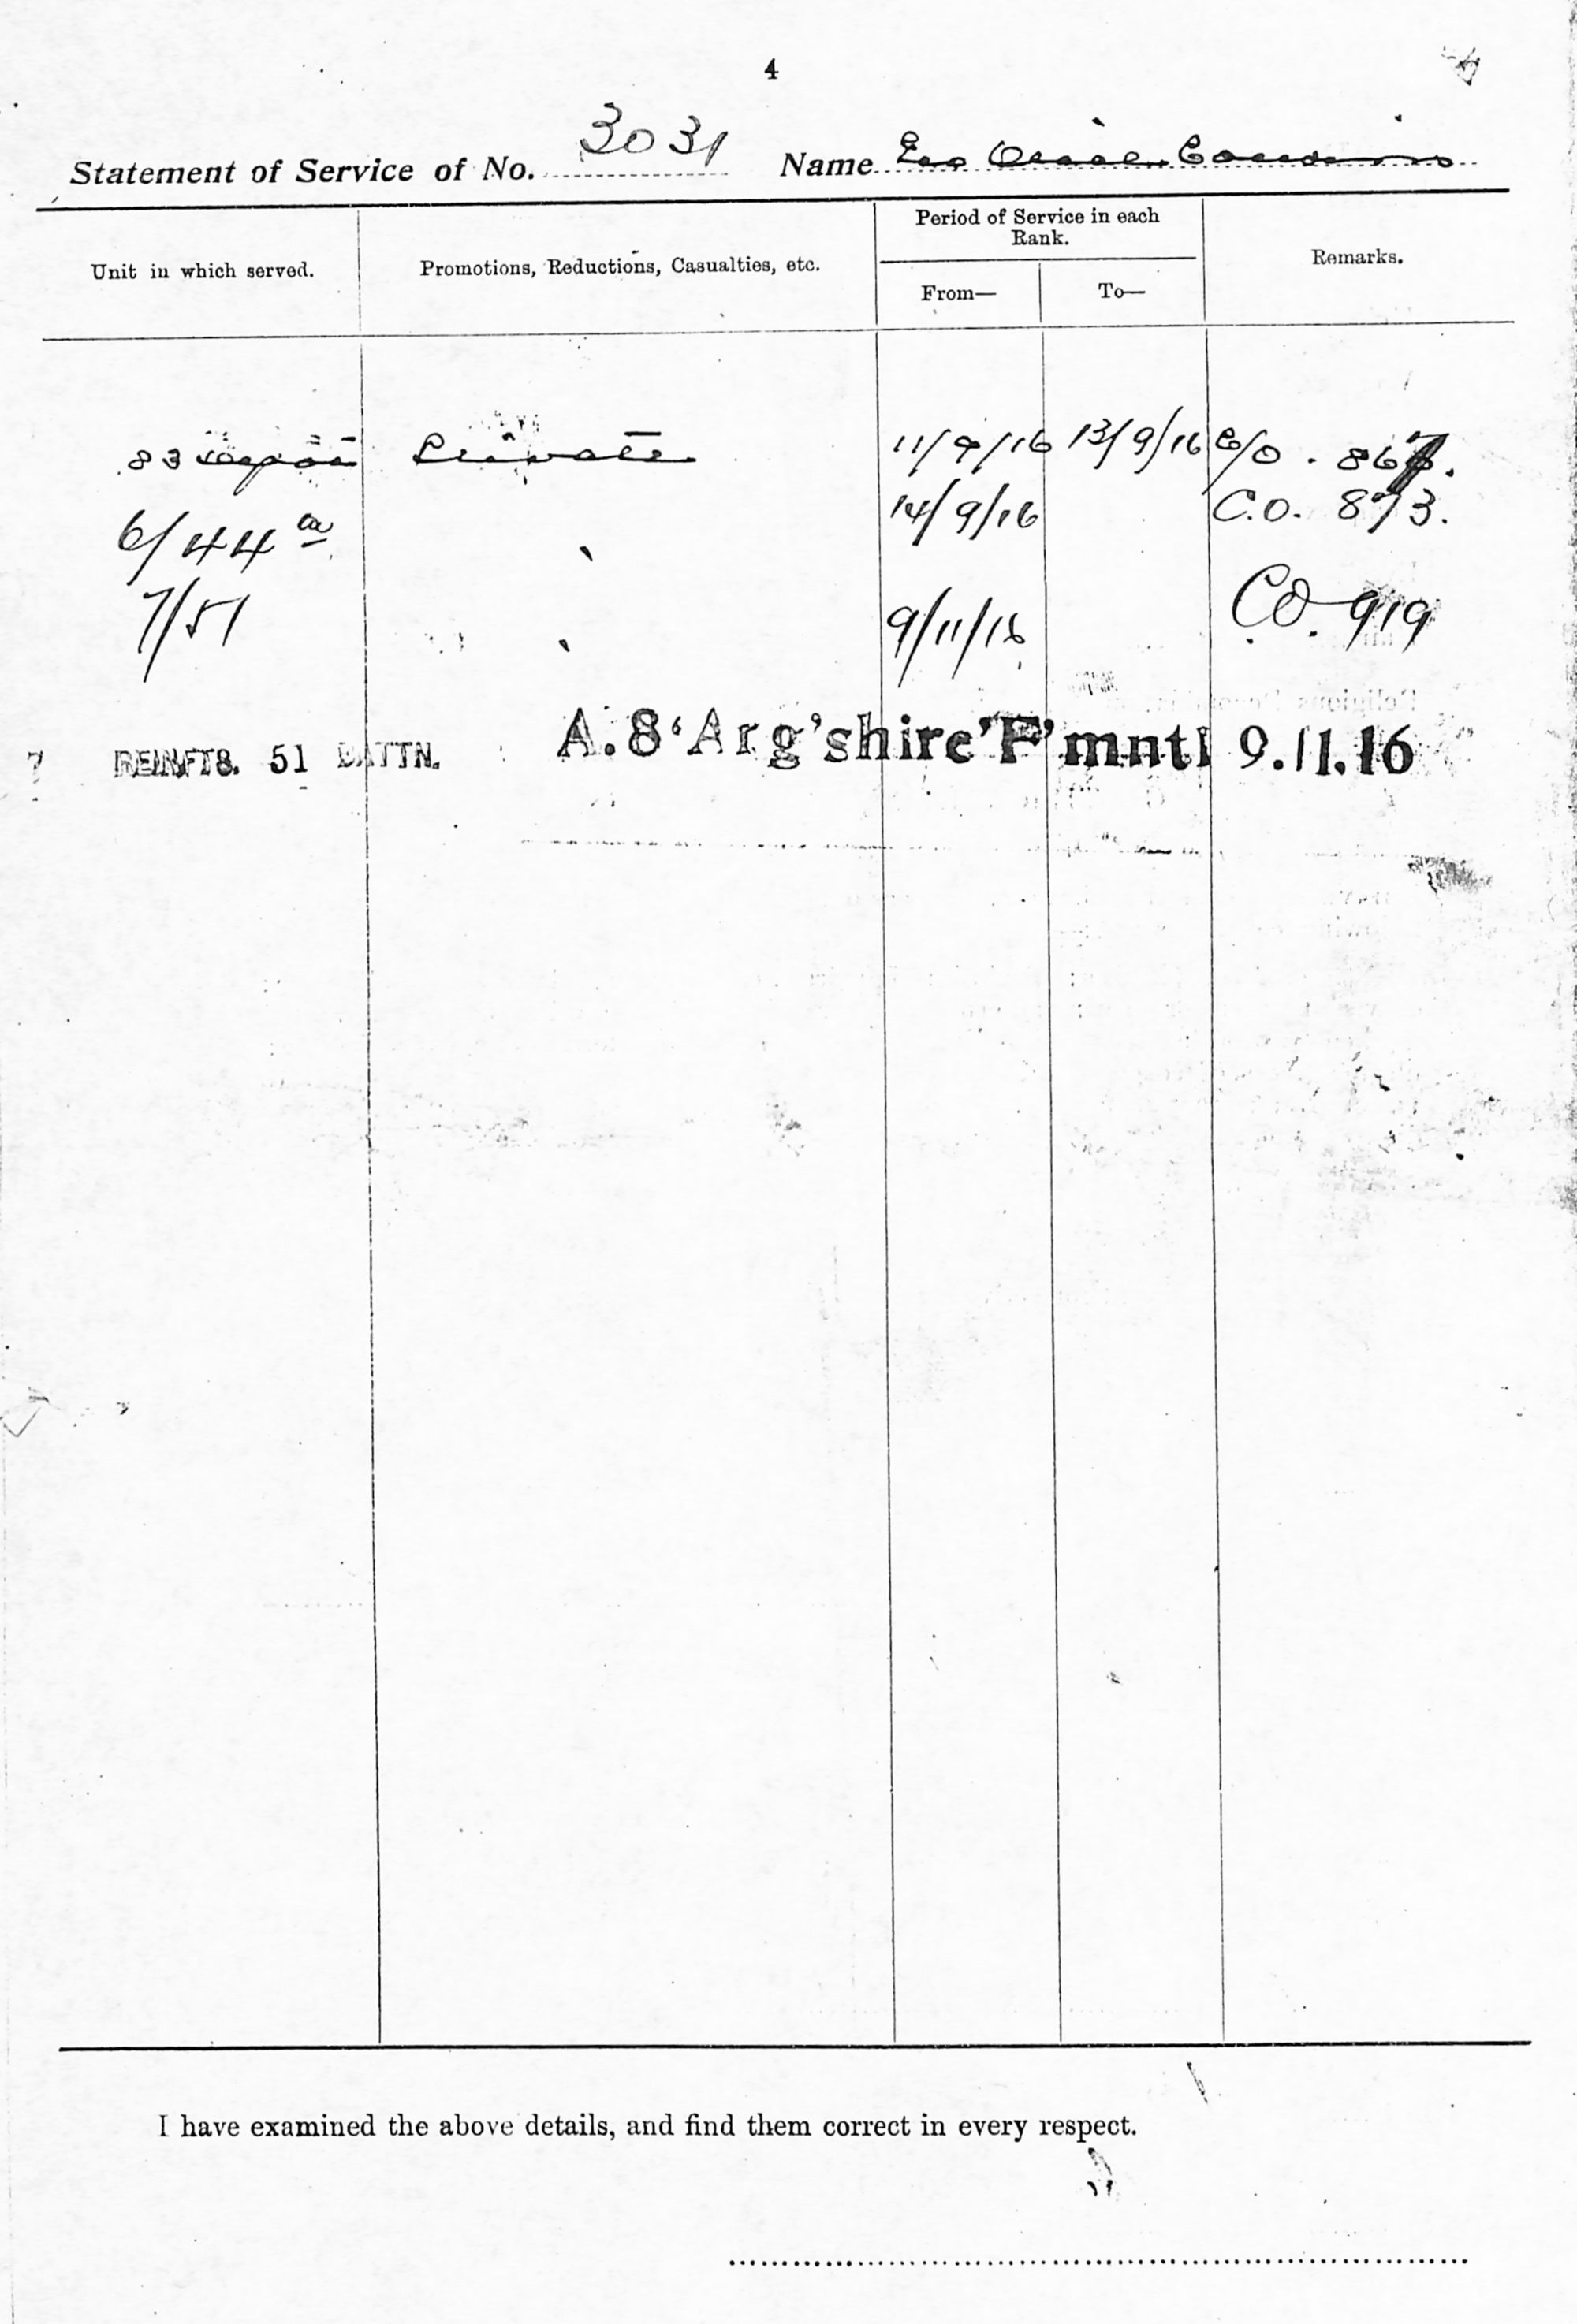 4
Statement of Service of No. 3031 Name
Unit in which served. Promotions, Reductions, Casualties, etc. Period of Service in each Rank. From— To— Remarks.
83 Depot Private 11/9/16 13/9/16 C/O. 867.
6/44th 14/9/16 C.O. 873.
7/51 9/11/16 CO. 919
7 REINFTS. 51 BATTN. A.8 ‘Arg’shire’ F’mntl 9.11.16
I have examined the above details, and find them correct in every respect.